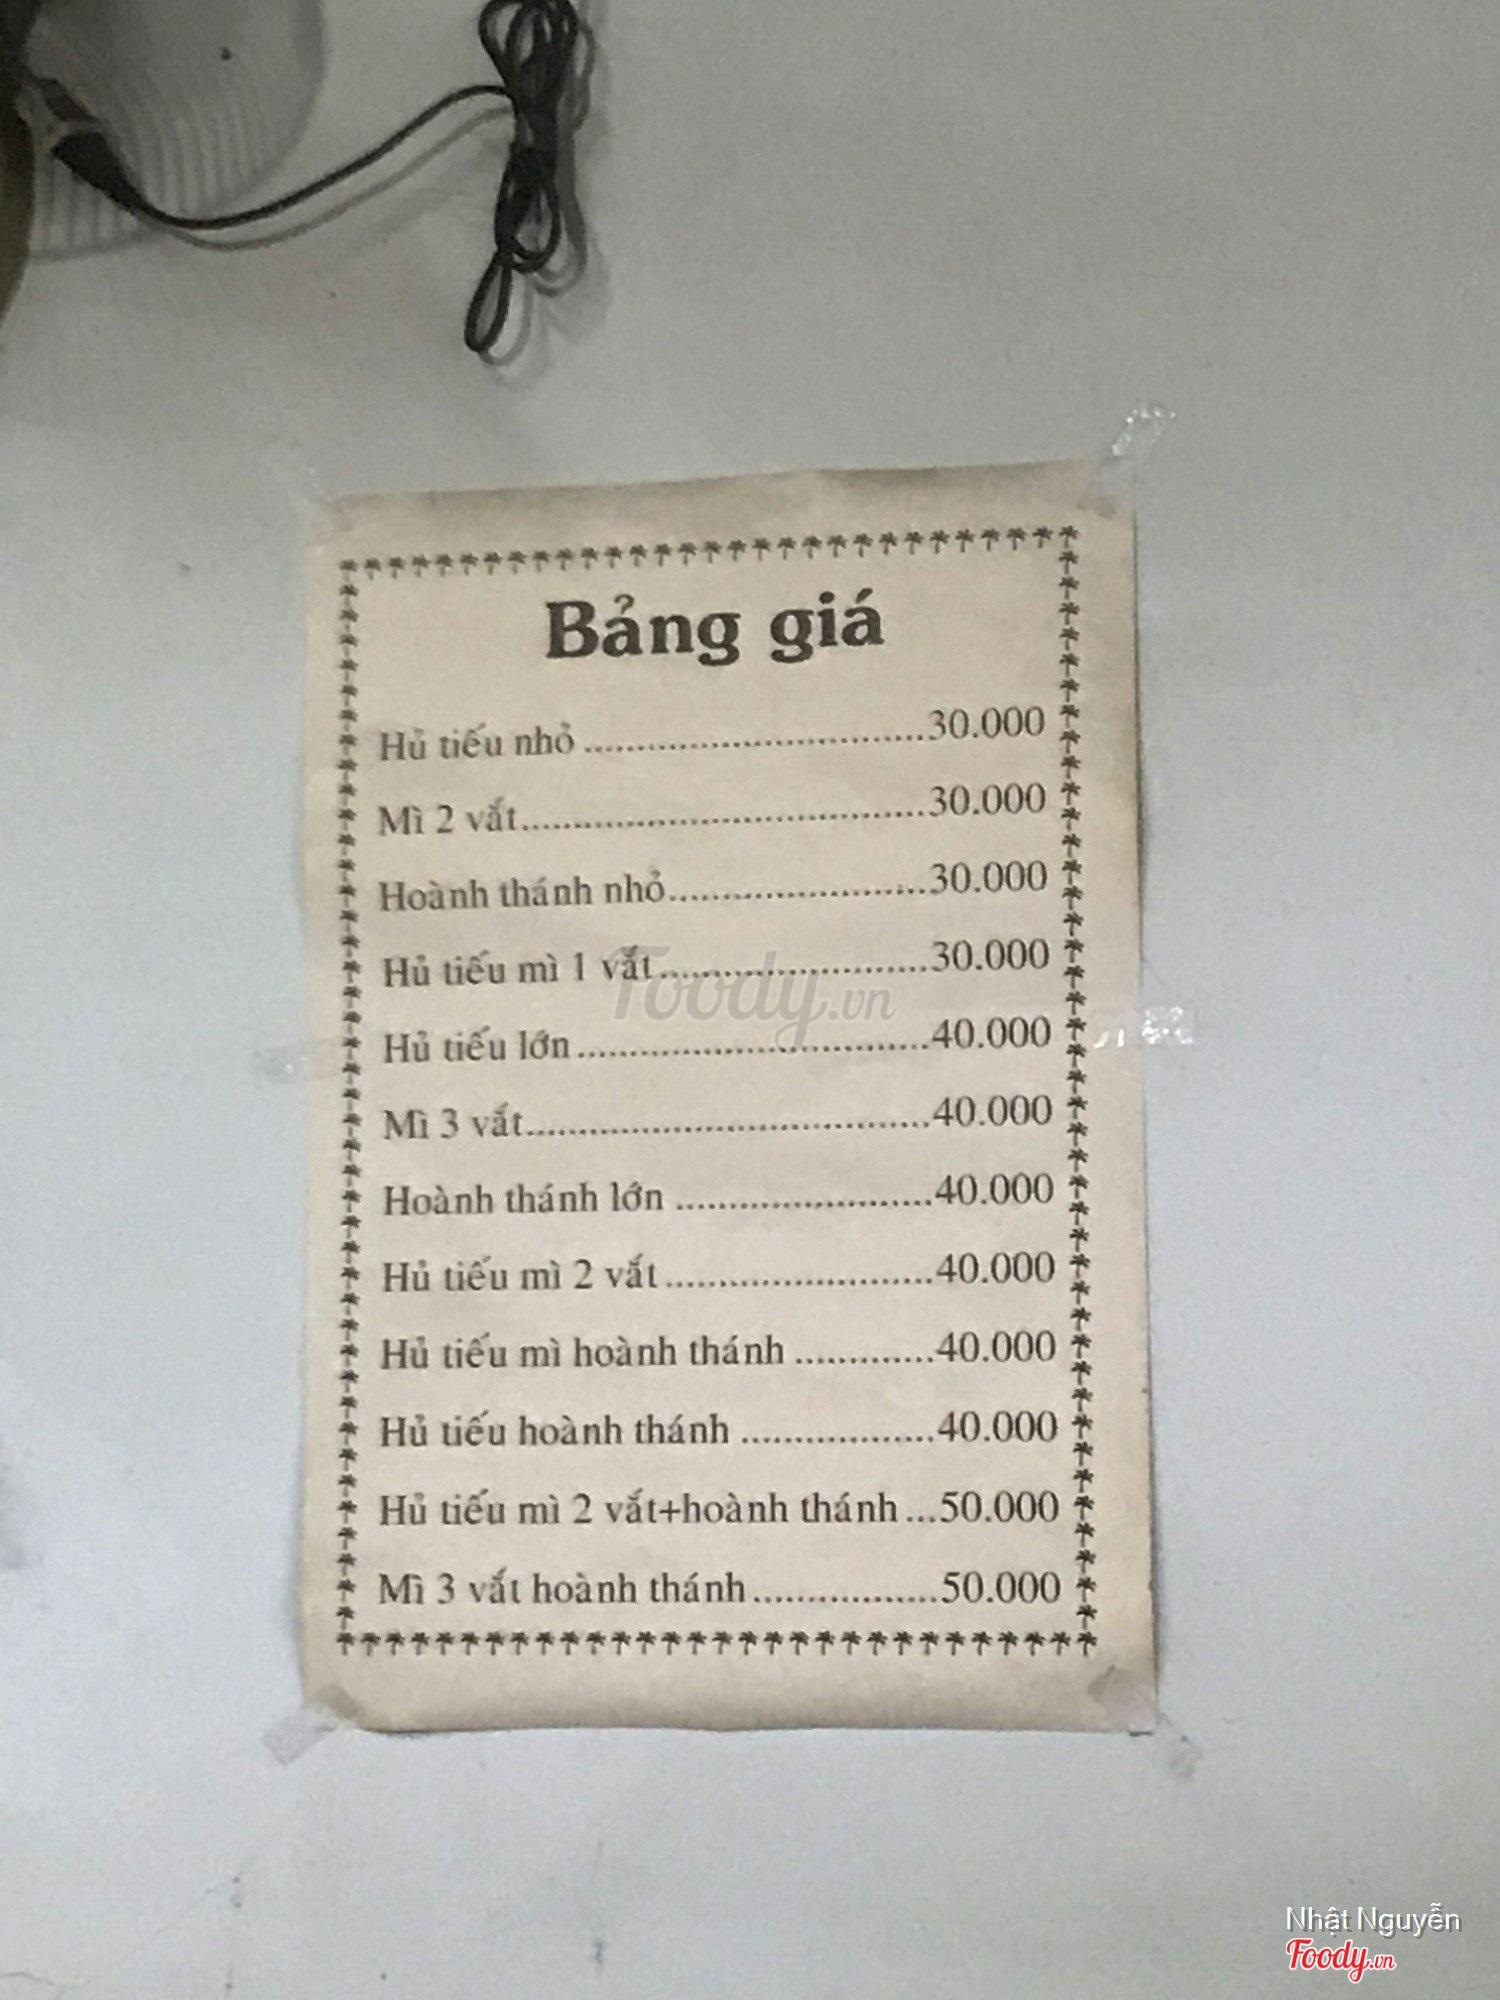 Bảng giá
Hủ tiếu nhỏ ................................30.000
Mì 2 vắt......................................30.000
Hoành thánh nhỏ........................30.000
Hủ tiếu mì 1 vắt.........................30.000
Hủ tiếu lớn .................................40.000
Mì 3 vắt......................................40.000
Hoành thánh lớn ........................40.000
Hủ tiếu mì 2 vắt.........................40.000
Hủ tiếu mì hoành thánh .............40.000
Hủ tiếu hoành thánh ..................40.000
Hủ tiếu mì 2 vắt+hoành thánh ...50.000
Mì 3 vắt hoành thánh.................50.000
Foody.vn
Nhật Nguyễn
Foody.vn